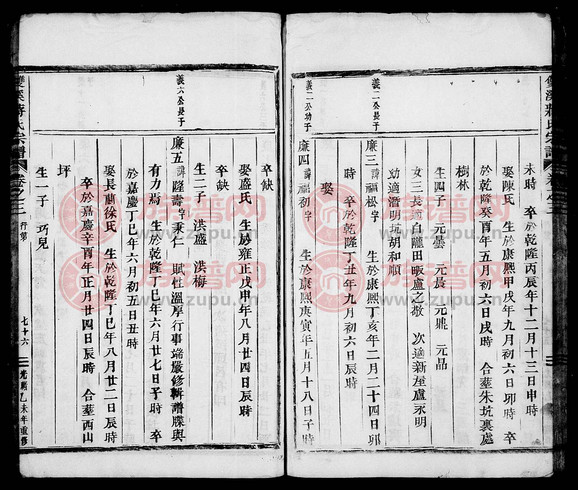 雙溪蔣氏宗譜
未時 卒於乾隆丙辰年十二月十三日申時
娶陳氏 生於康熙甲戌年九月初六日卯時 卒
於乾隆癸酉年五月初六日戌時 合塟朱坑裏處
樹林
生四子 元曇 元長 元鼎 元品
女三長適白隴田畈盧之敬 次適新屋盧永明
幼適潛明坑胡和順
義二公功子
廉三 諱福松字 生於康熙丁亥年二月二十四日卯
時 卒於乾隆丁丑年九月初六日時
娶
義二公幼子
廉四 諱福初字 生於康熙庚寅年五月十八日子時
卒缺
娶盛氏 生於雍正戊申年八月廿四日辰時
卒缺
生二子 洪盛 洪梅
義六公長子
廉五 諱隆壽字秉仁 賦性溫厚行事端嚴修輯譜牒與
有力焉 生於乾隆丁巳年六月廿七日子時 卒
於嘉慶丁巳年六月初五日丑時
娶長蘭徐氏 生於乾隆丁巳年八月廿二日辰時
卒於嘉慶辛酉年正月廿四日辰時 合塟西山
坪
生一子 巧兒
雙溪蔣氏宗譜 卷之三 行第 七十六 光緒乙未年重修
族譜网
www.zupu.cn
族譜网
www.zupu.cn